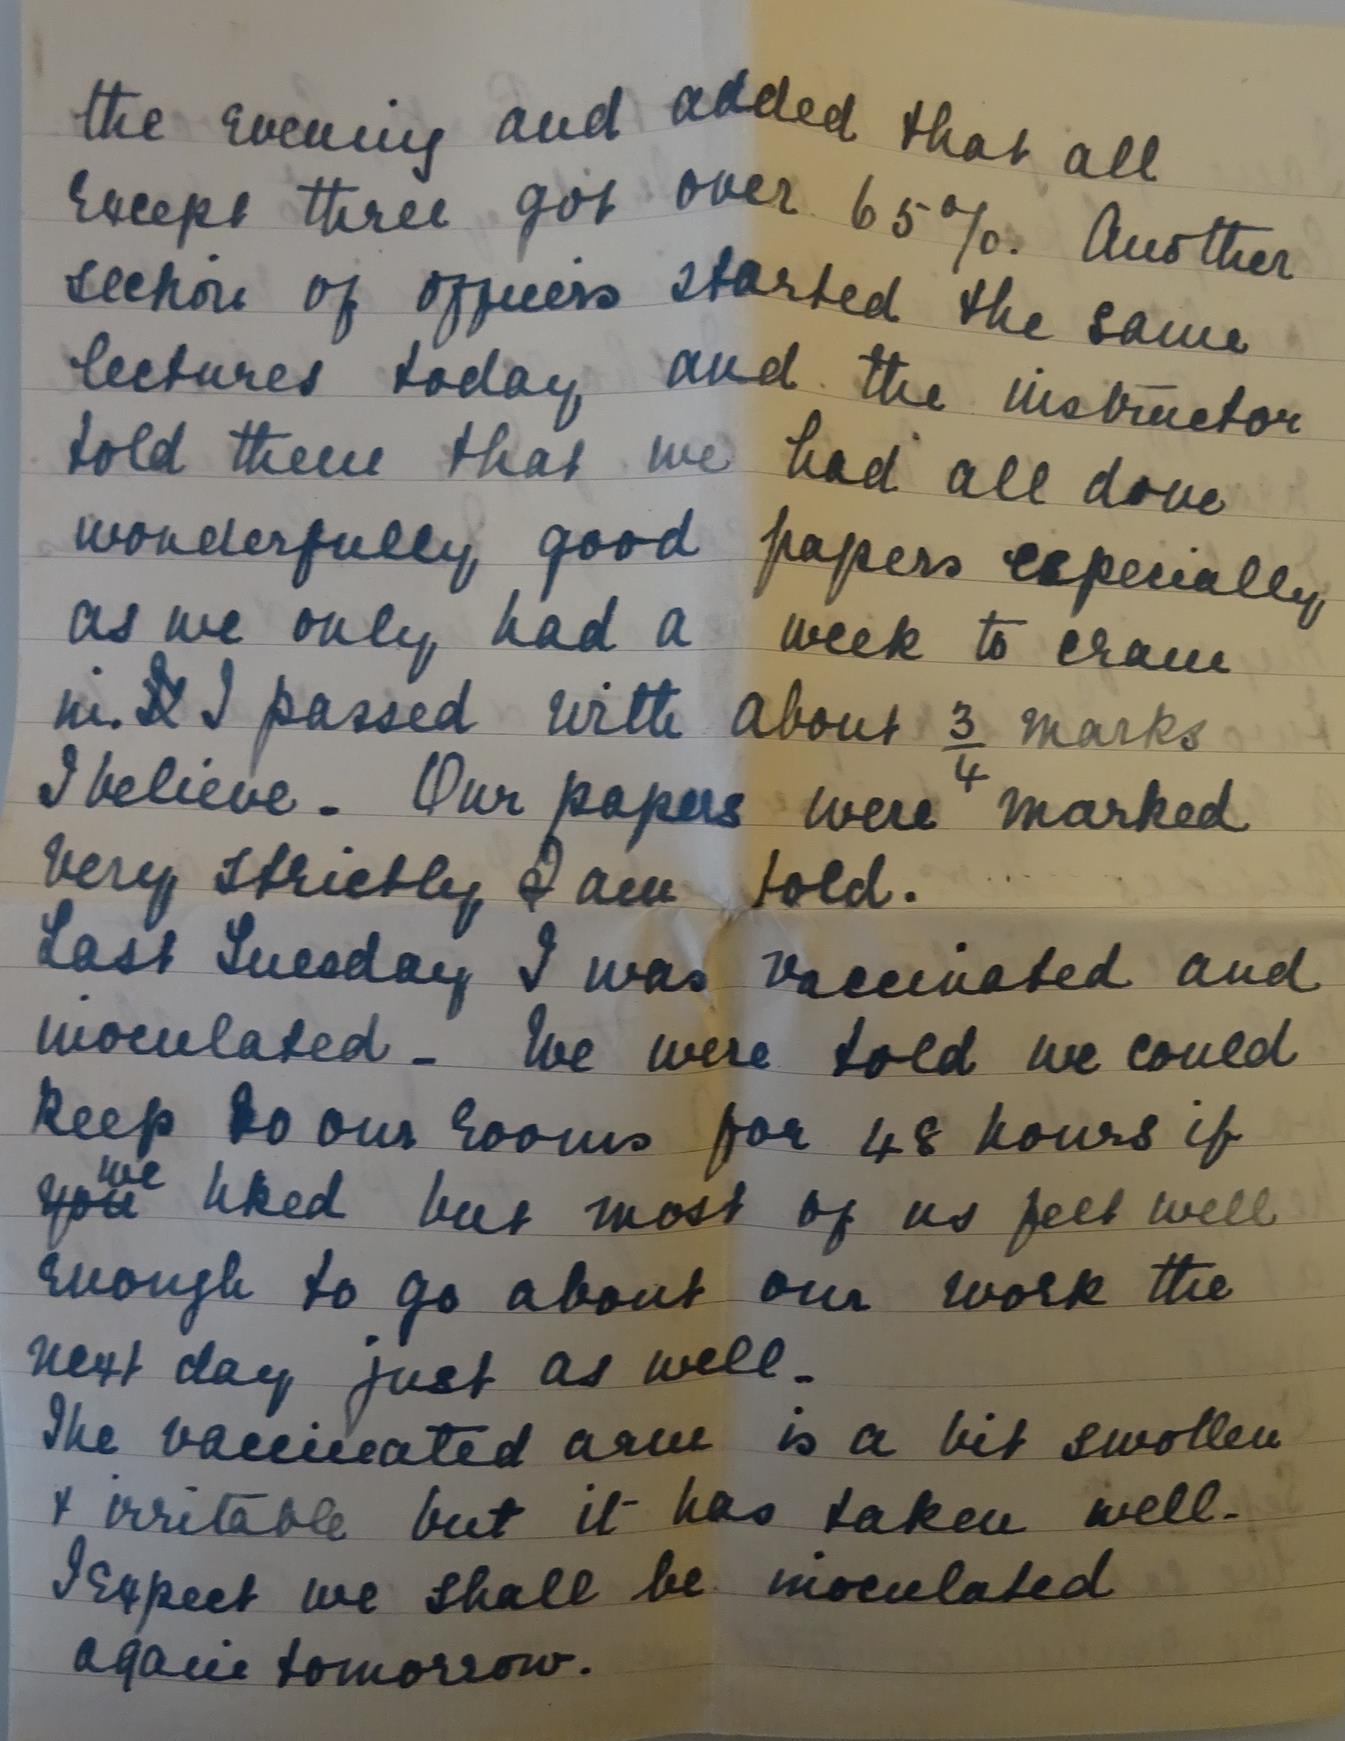 the evening and added that all
except three got over 65%. Another
section of officers started the same
lectures today and the instructor
told them that we had all done
wonderfully good papers especially
as we only had a week to cram
in. I passed with about 3/4 marks
I believe. Our papers were marked
very strictly I am told.
Last Tuesday I was vaccinated and
inoculated - We were told we could
keep to our rooms for 48 hours if
you we liked but most of us felt well
enough to go about our work the
next day just as well.
The vaccinated arm is a bit swollen
+ irritable but it has taken well.
I expect we shall be inoculated
again tomorrow.